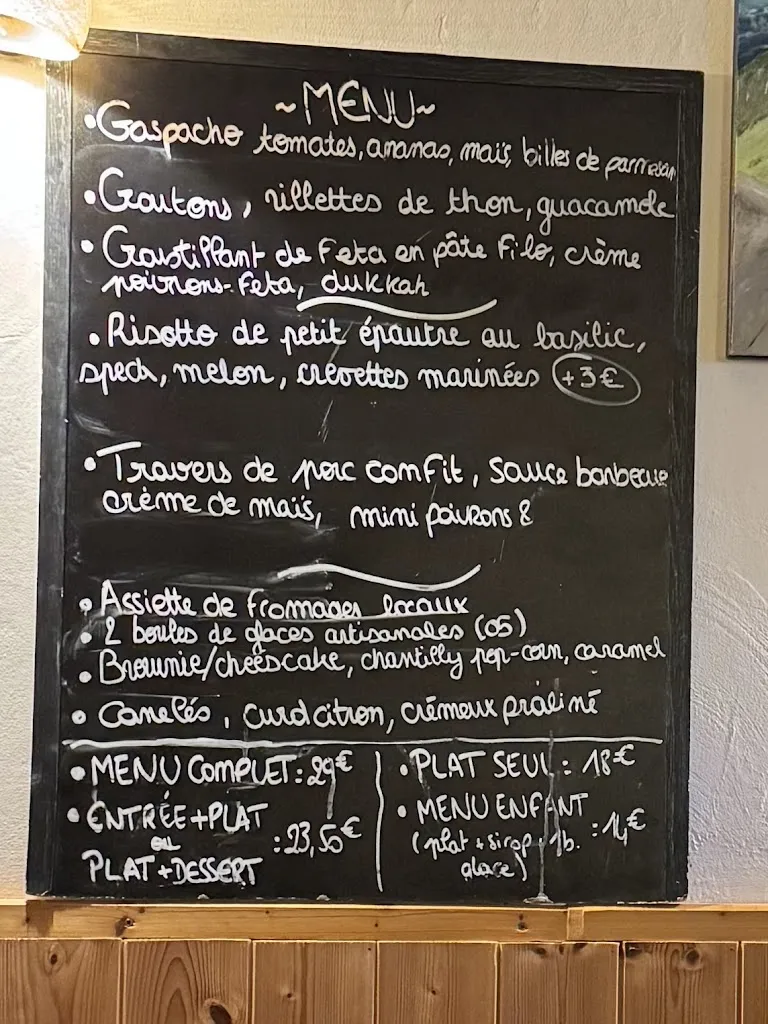 ~MENU~
• Gaspacho tomates, ananas, maïs, billes de parmesan
• Croutons, rillettes de thon, guacamole
• Croustillant de Feta en pâte Filo, crème
poivrons-Feta, dukkah
• Risotto de petit épautre au basilic,
speck, melon, crevettes marinées +3€
• Travers de porc comfit, sauce barbecue
crème de maïs, mini poivrons &
• Assiette de fromages locaux
• 2 boules de glaces artisanales (05)
• Brownie/cheescake, chantilly pop-corn, caramel
• Canelés, curd citron, crémeux praliné
• MENU COMPLET : 29€
• ENTRÉE + PLAT
ou : 23,50€
PLAT + DESSERT
• PLAT SEUL : 18€
• MENU ENFANT
(plat + sirop 1b. : 14€
glace)